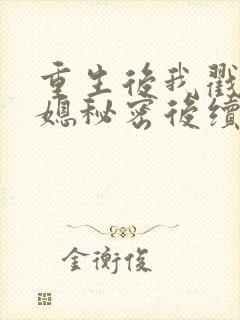 重生後我戳
媳秘密後續
金衡俊